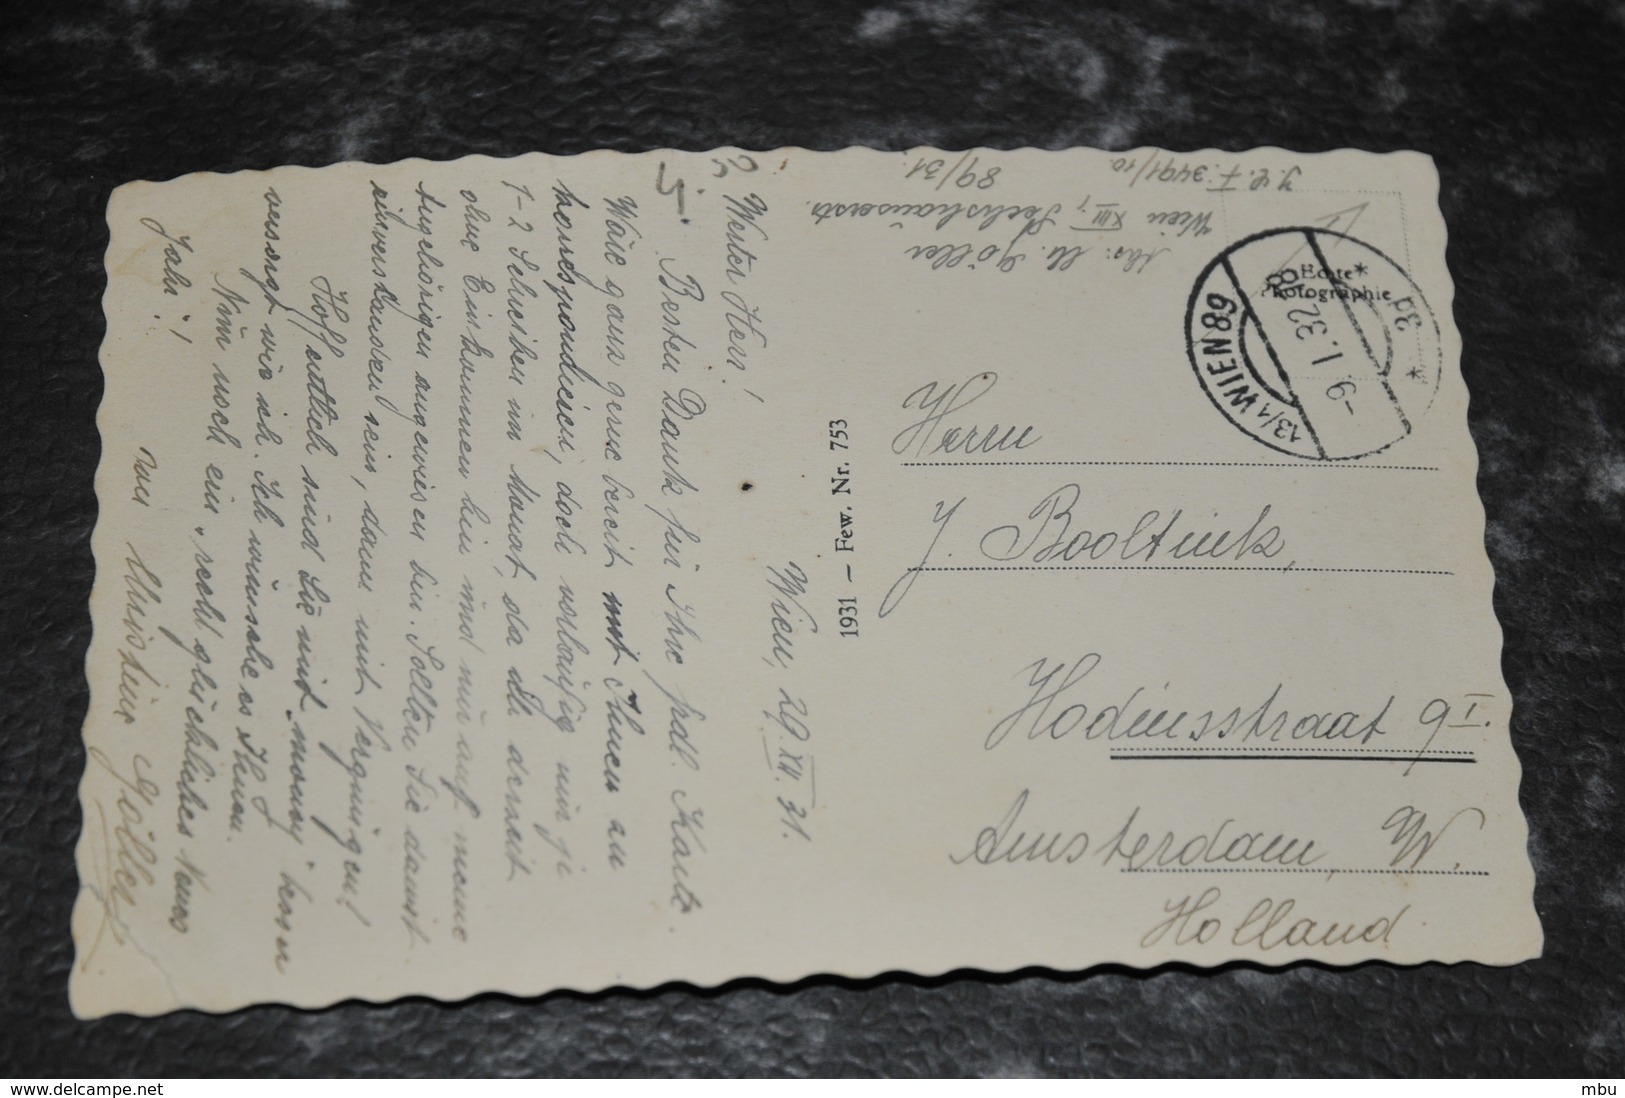 Wien, 29.XII.31.
Werter Herr!
Besten Dank für Ihre frdl. Karte.
Wäre ganz gerne bereit mit Ihnen zu
korrespondieren, doch vorläufig nur je
1-2 Scheiben im Monat, da ich derzeit
ohne Einkommen bin und nur auf meine
Angehörigen angewiesen bin. Sollten Sie damit
einverstanden sein, dann mit Vergnügen!
Hoffentlich sind Sie mit "money" besser
versorgt wie ich. Ich wünsche es Ihnen.
Nun noch ein "recht glückliches Neues
Jahr!
Göller
1931 – Few. Nr. 753
J.C.F. 3491/10
89/31.
Göller
Wien XIII, Sechshauserstr.
Echte
Photographie
13/1 WIEN 89
-9. I. 32 - 18
3d
Herrn
J. Booltink,
Hodiusstraat 9 I.
Amsterdam, W.
Holland
delcampe.net
mbu